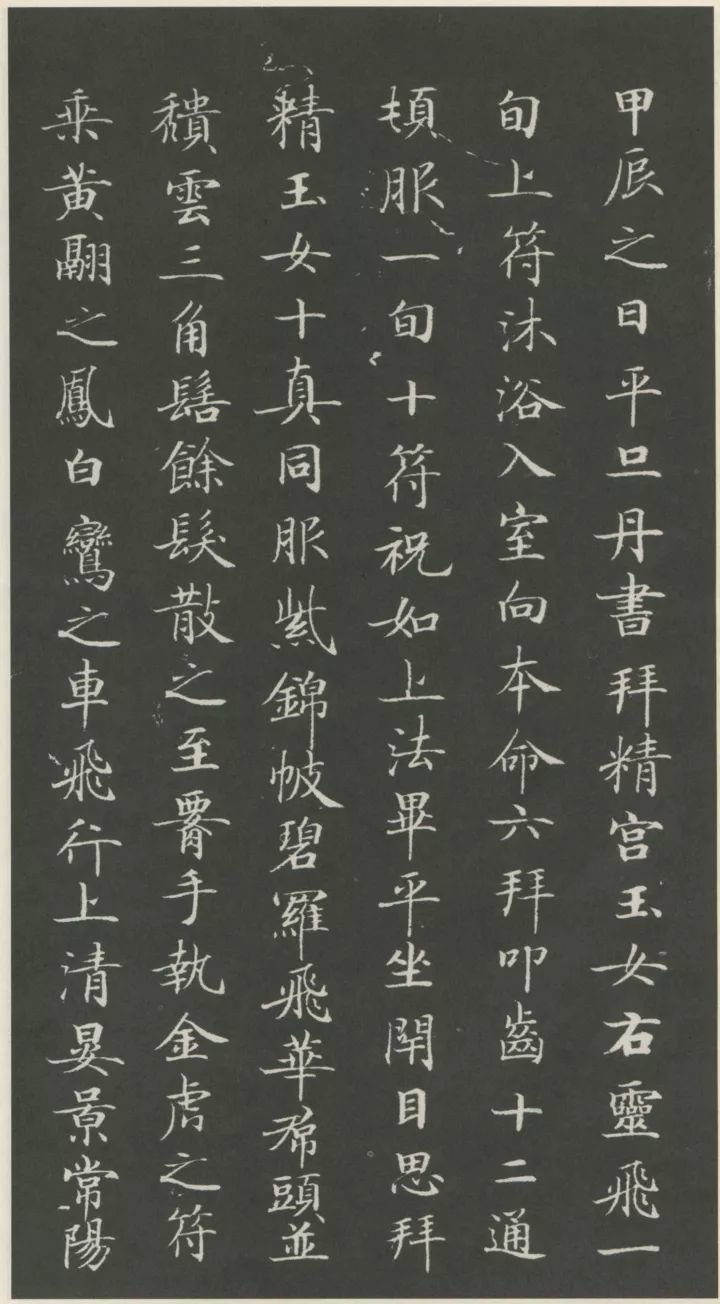 甲辰之日平旦丹書拜精宮玉女右靈飛一
旬上符沐浴入室向本命六拜叩齒十二通
頓服一旬十符祝如上法畢平坐閉目思拜
精玉女十真同服紫錦帔碧羅飛華帬頭並
穨雲三角髻餘髮散之至署手執金虎之符
乘黃翮之鳳白鸞之車飛行上清晏景常陽